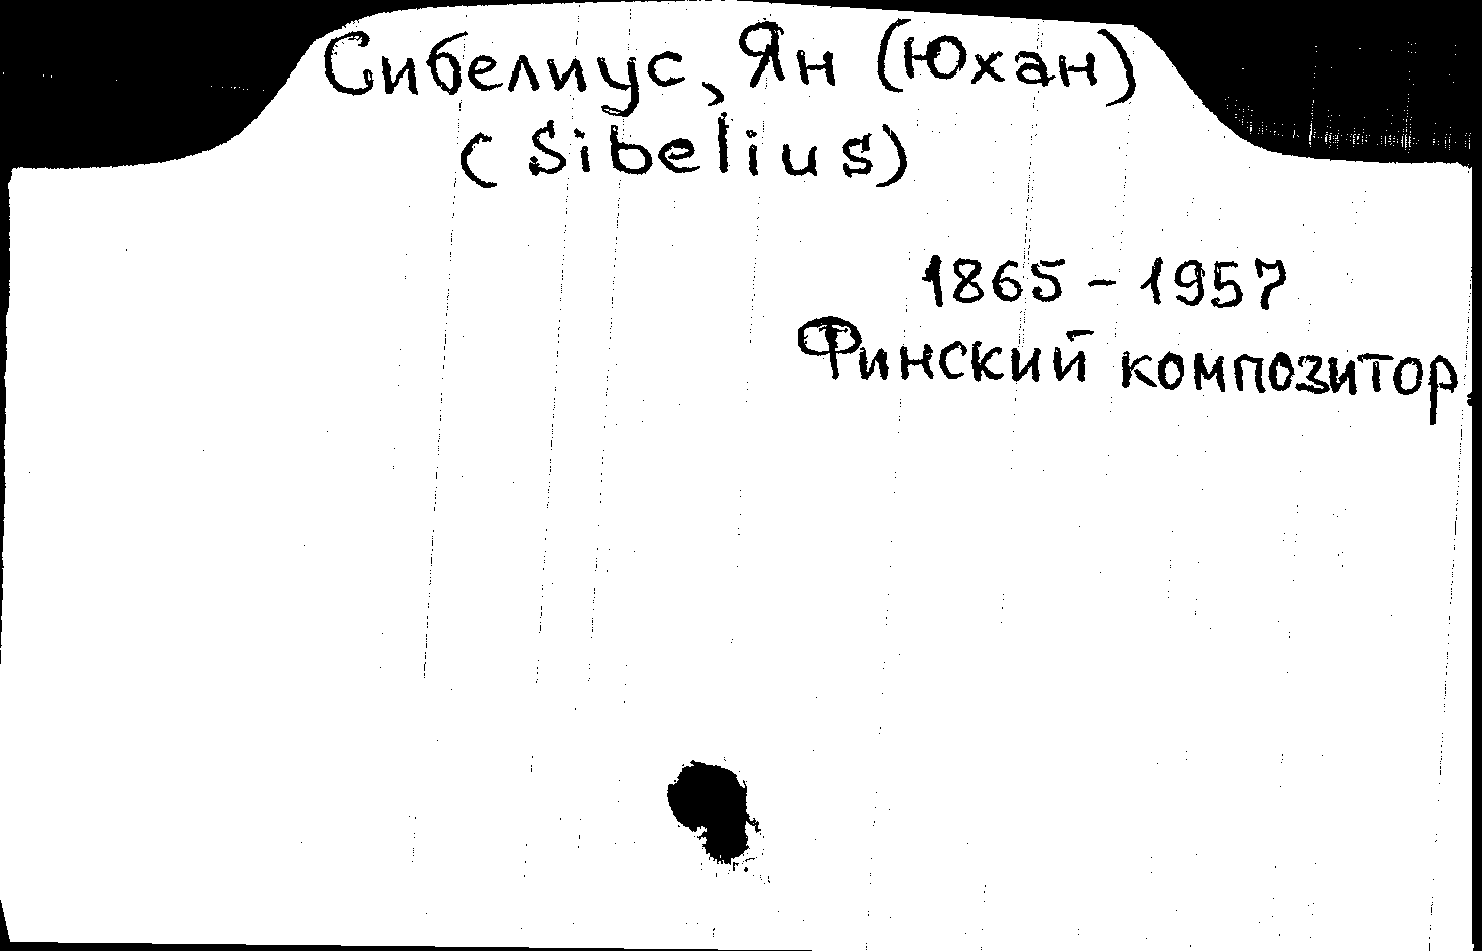 Сибелиус, Ян (Юхан)
(Sibelius)
1865 - 1957
Финский композитор.